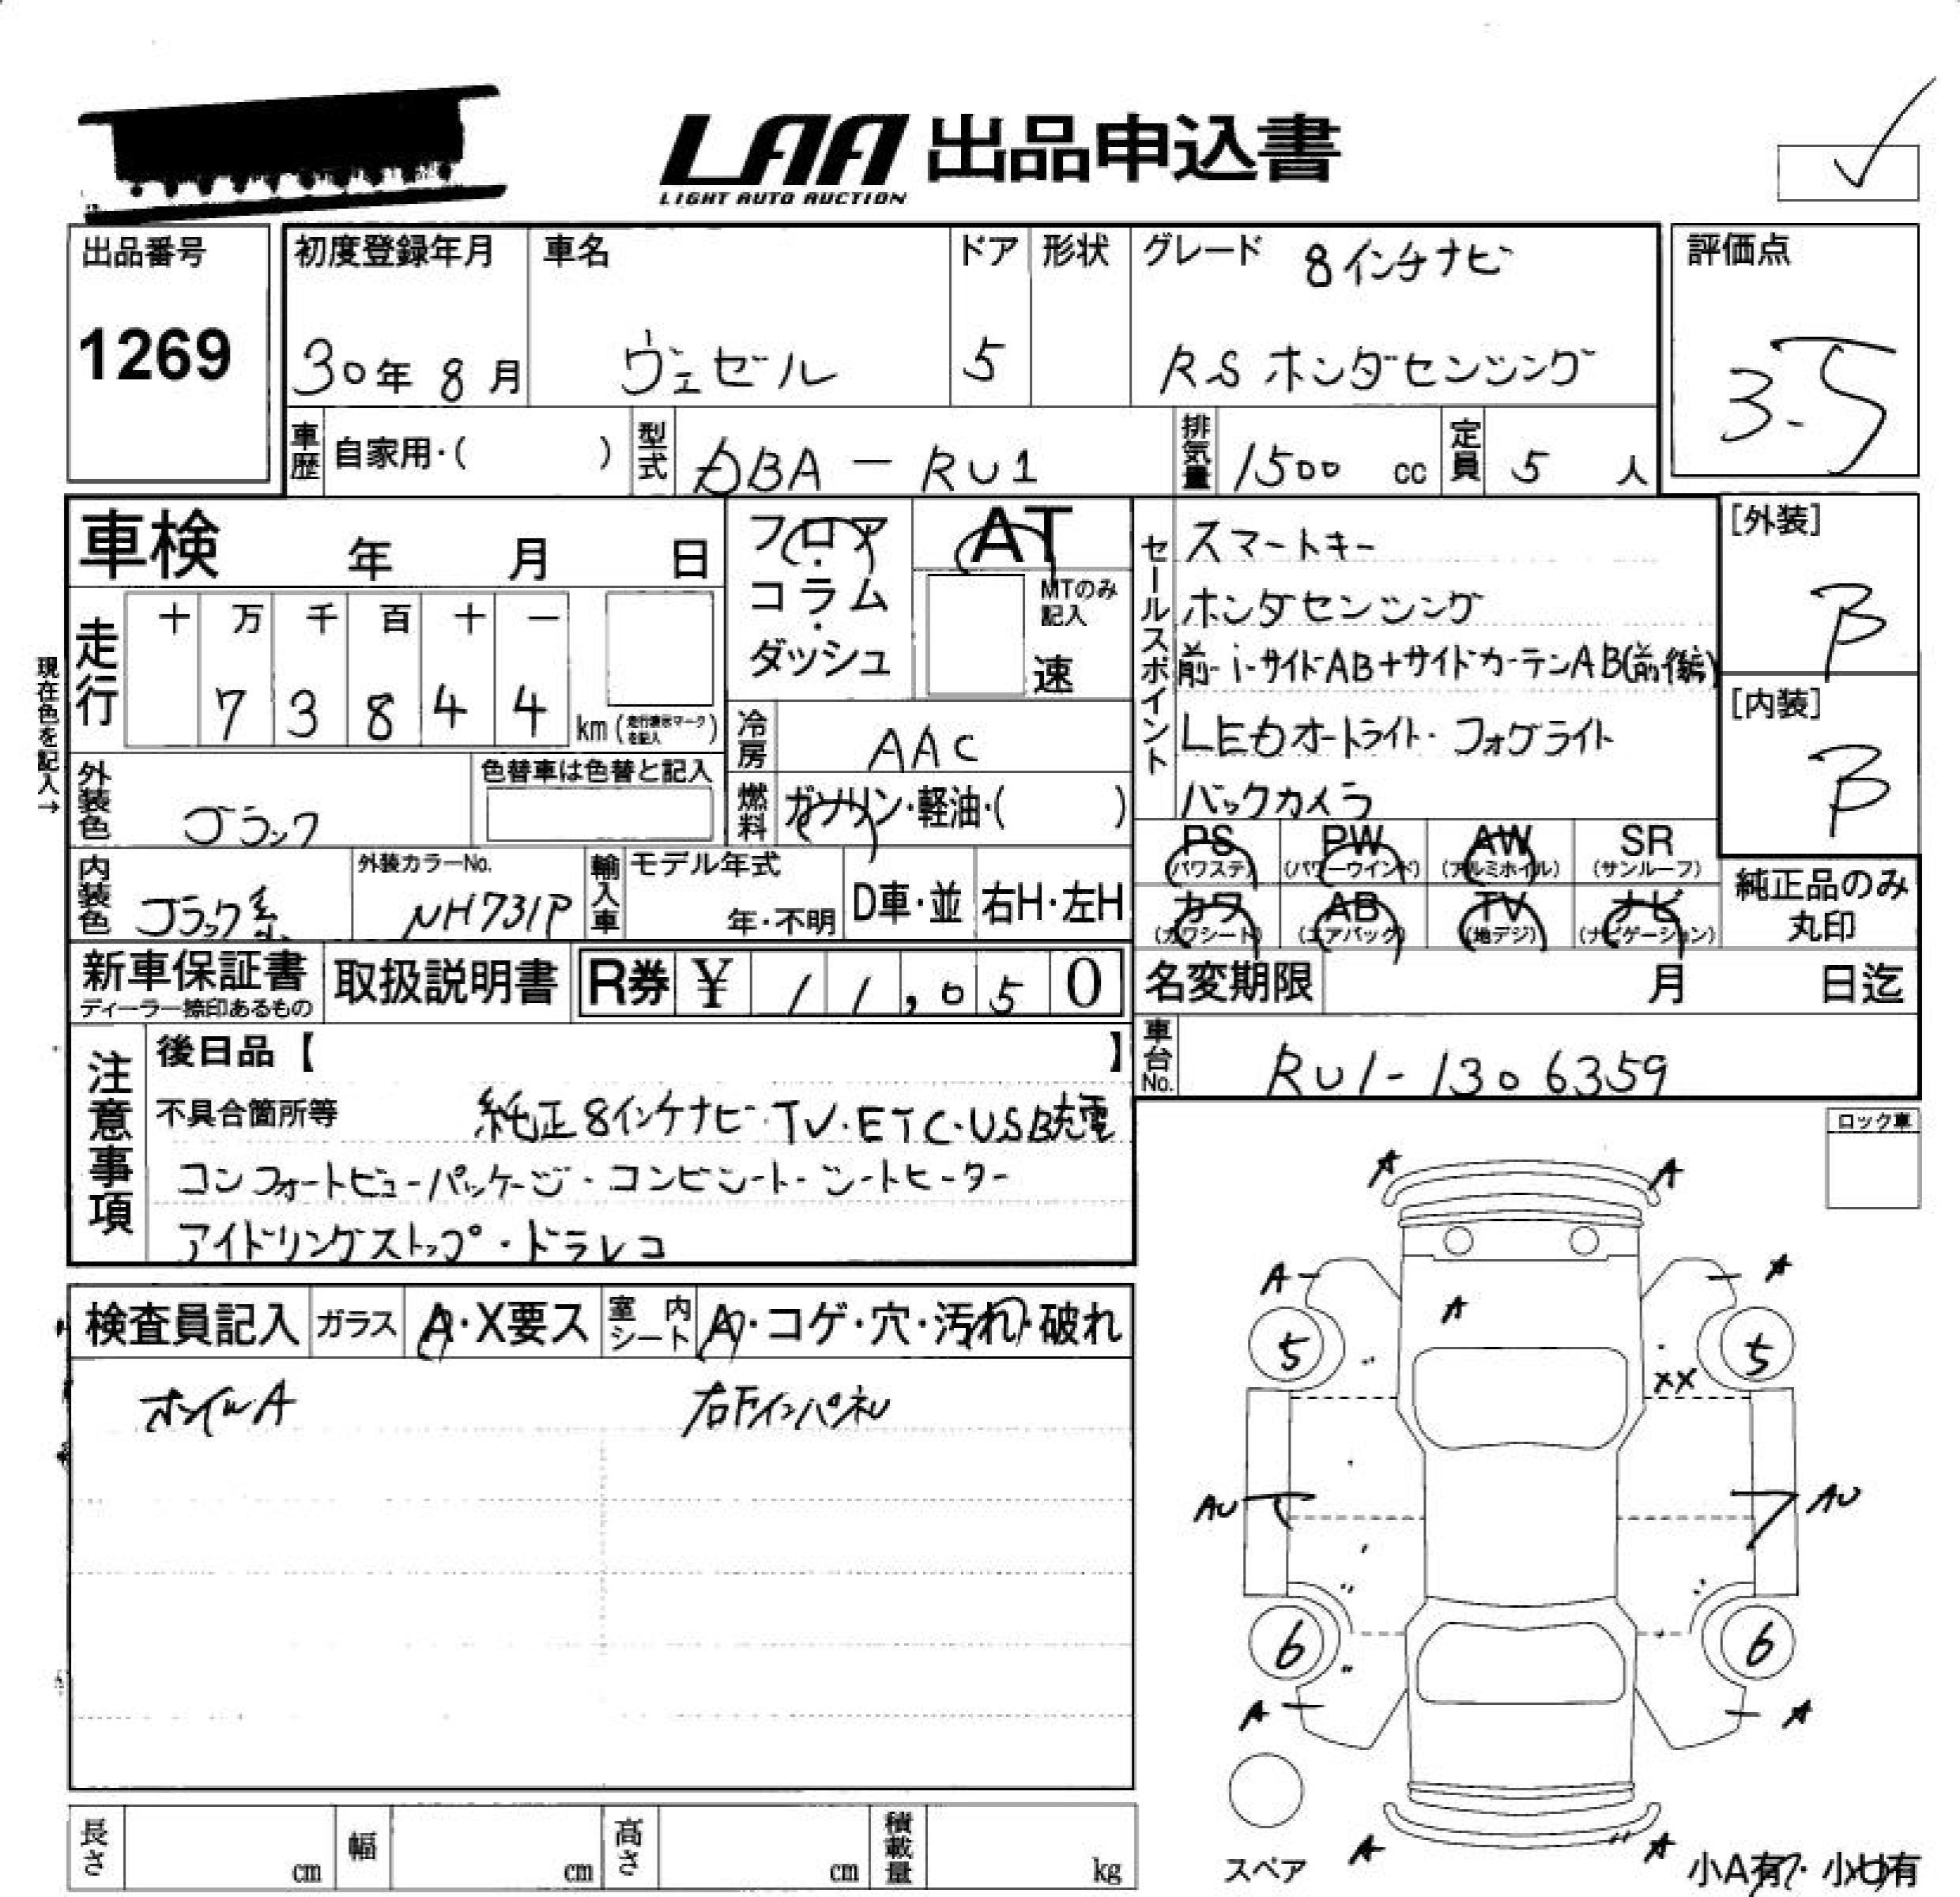 LAA 出品申込書
LIGHT AUTO AUCTION
出品番号
1269
初度登録年月
30年 8月
車名
ヴェゼル
ドア
5
形状
グレード 8インチナビ
RS ホンダセンシング
評価点
3.5
車歴 自家用・( )
型式 DBA-RU1
排気量 1500 cc
定員 5 人
車検 年 月 日
フロア・コラム・ダッシュ
AT
MTのみ記入
速
セールスポイント
スマートキー
ホンダセンシング
前i-サイドAB+サイドカーテンAB(前後席)
LEDオートライト・フォグライト
バックカメラ
[外装]
B
[内装]
B
現在色を記入→
走行
十 万 千 百 十 一
7 3 8 4 4
km (走行表示マークを記入)
冷房 AAC
燃料 ガソリン・軽油・( )
外装色 ブラック
色替車は色替と記入
内装色 ブラック系
外装カラーNo.
NH731P
輸入車 モデル年式
年・不明
D車・並
右H・左H
PS (パワステ)
PW (パワーウインド)
AW (アルミホイル)
SR (サンルーフ)
カワ (カワシート)
AB (エアバック)
TV (地デジ)
ナビ (ナビゲーション)
純正品のみ丸印
新車保証書
ディーラー捺印あるもの
取扱説明書
R券 ¥ 11,050
名変期限 月 日迄
車台No. RU1-1306359
注意事項
後日品【 】
不具合箇所等 純正8インチナビ・TV・ETC・USB充電
コンフォートビューパッケージ・コンビシート・シートヒーター
アイドリングストップ・ドラレコ
ロック車
検査員記入
ガラス A・X要ス
室内シート A・コゲ・穴・汚れ・破れ
ホイルA
右下インパネル
A A
A A
A
5 5
XX
AU AU
6 6
A A
A A
スペア
小A有・小U有
長さ cm
幅 cm
高さ cm
積載量 kg